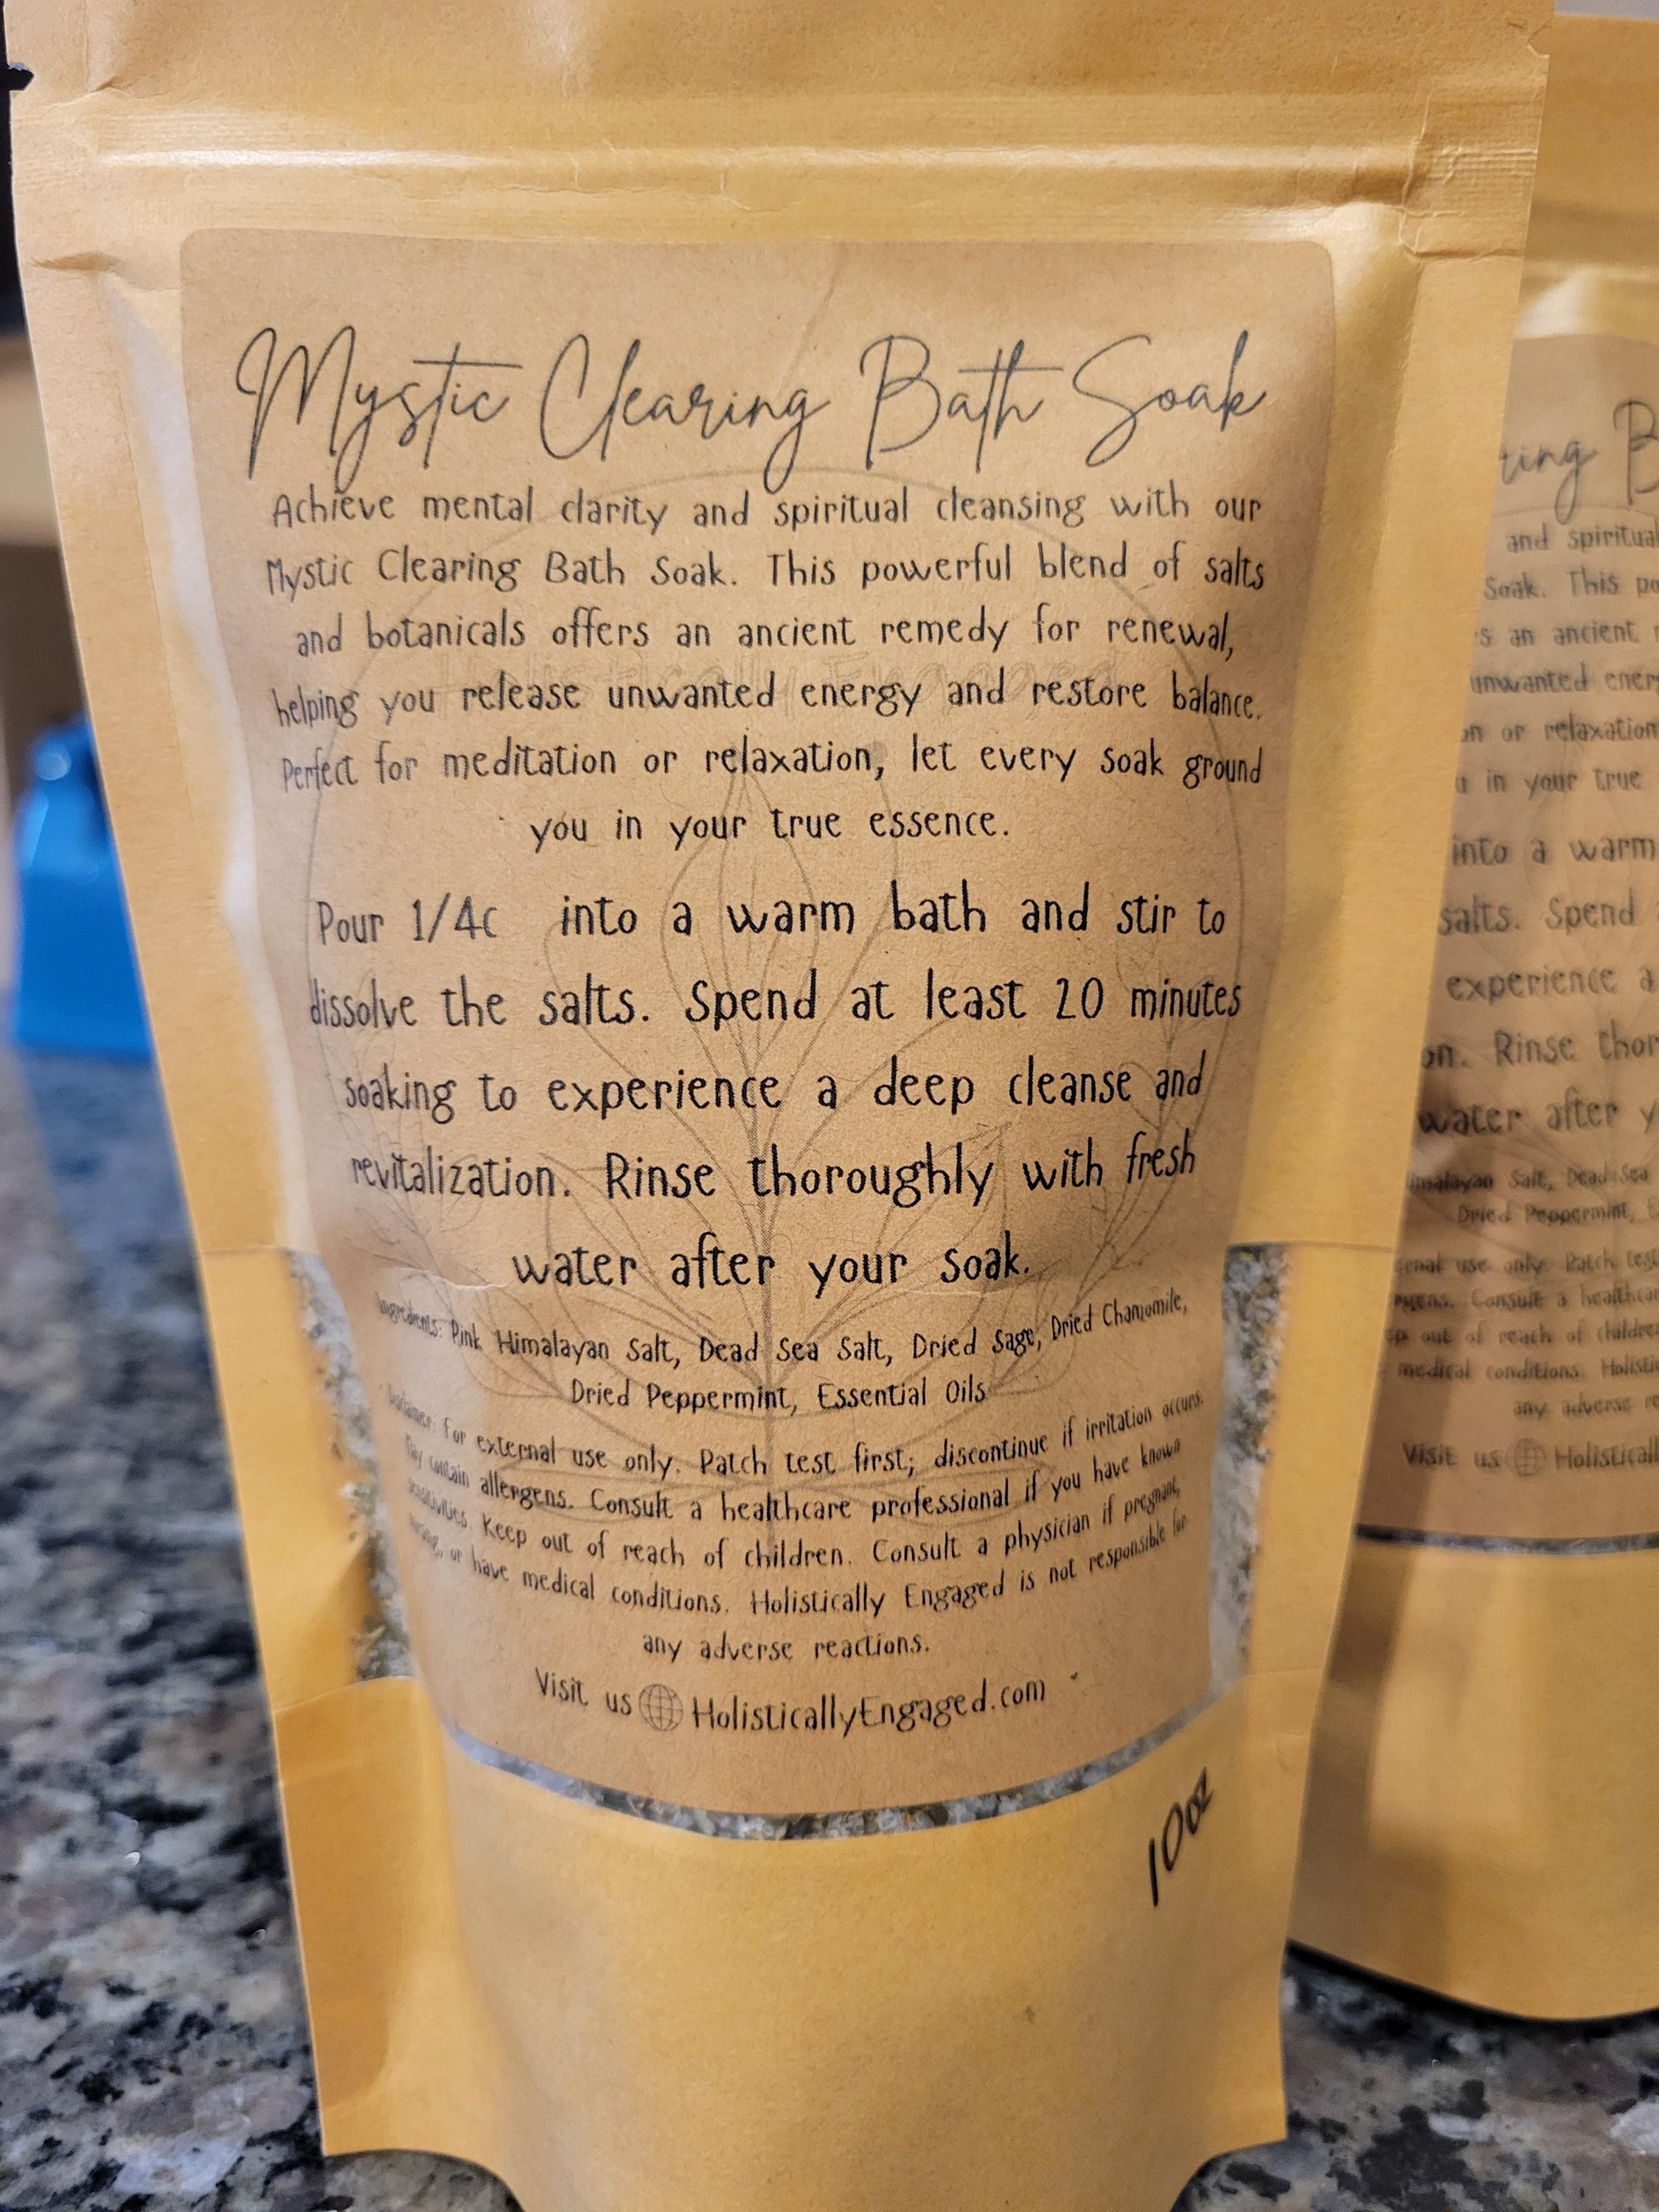 Mystic Clearing Bath Soak
Achieve mental clarity and spiritual cleansing with our
Mystic Clearing Bath Soak. This powerful blend of salts
and botanicals offers an ancient remedy for renewal,
helping you release unwanted energy and restore balance.
Perfect for meditation or relaxation, let every soak ground
you in your true essence.
Pour 1/4c into a warm bath and stir to
dissolve the salts. Spend at least 20 minutes
soaking to experience a deep cleanse and
revitalization. Rinse thoroughly with fresh
water after your soak.
Ingredients: Pink Himalayan Salt, Dead Sea Salt, Dried Sage, Dried Chamomile,
Dried Peppermint, Essential Oils
Disclaimer: For external use only. Patch test first; discontinue if irritation occurs.
May contain allergens. Consult a healthcare professional if you have known
sensitivities. Keep out of reach of children. Consult a physician if pregnant,
nursing, or have medical conditions. Holistically Engaged is not responsible for
any adverse reactions.
Visit us HolisticallyEngaged.com
10oz
ring B
and spiritual
Soak. This
an ancient
unwanted
or relaxation
in your true
into a warm
salts. Spend
experience a
Rinse
water after
Himalayan Salt, Dead Sea
Dried Peppermint,
use only. Patch
Consult a
out of reach of children
medical conditions.
any adverse
Visit us